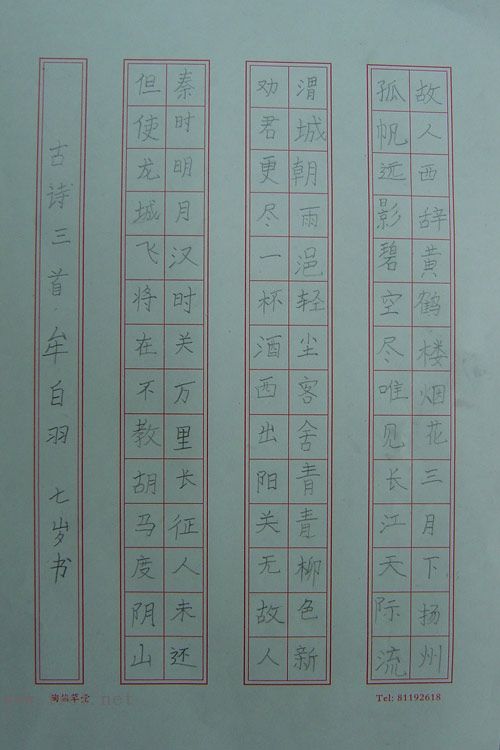 故人西辞黄鹤楼烟花三月下扬州
孤帆远影碧空尽唯见长江天际流
渭城朝雨浥轻尘客舍青青柳色新
劝君更尽一杯酒西出阳关无故人
秦时明月汉时关万里长征人未还
但使龙城飞将在不教胡马度阴山
古诗三首·牟白羽 七岁书
Tel: 81192618